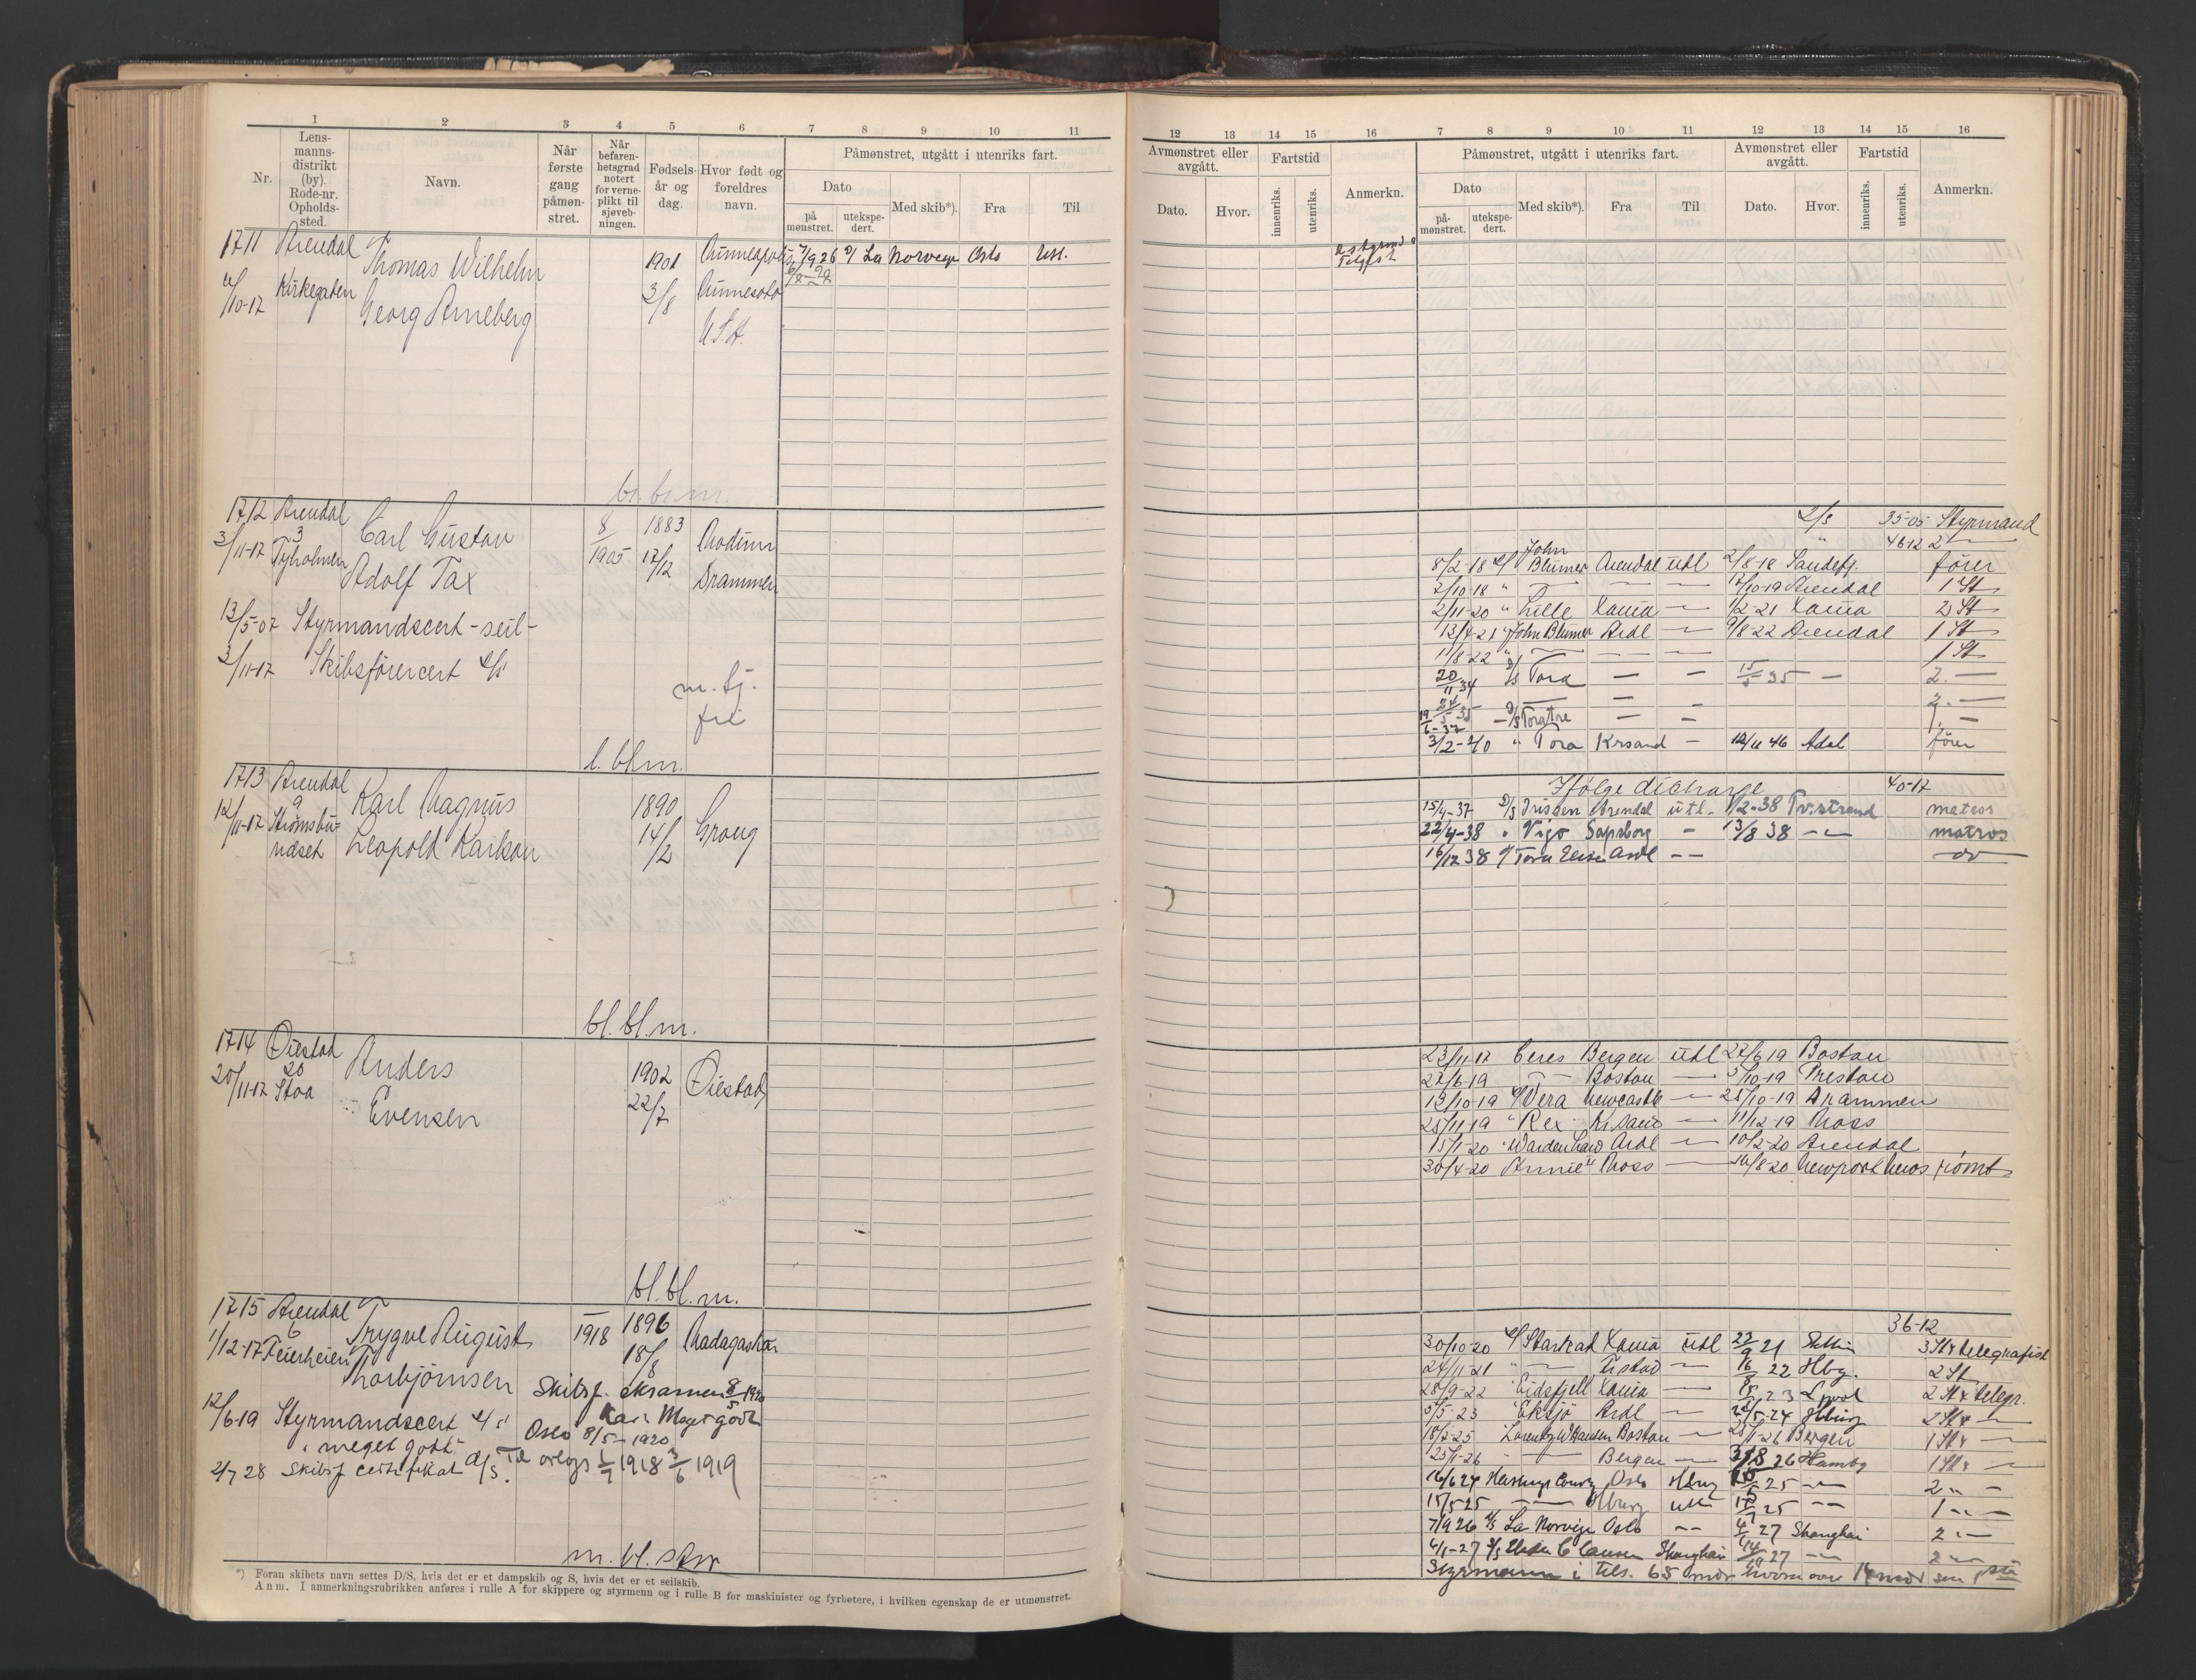 1 2 3 4 5 6 7 8 9 10 11
Nr.
Lens-
manns-
distrikt
(by).
Rode-nr.
Opholds-
sted.
Navn.
Når
første
gang
påmøn-
stret.
Når
befaren-
hetsgrad
notert
for verne-
plikt til
sjøveb-
ningen.
Fødsels-
år og
dag.
Hvor født og
foreldres
navn.
Påmønstret, utgått i utenriks fart.
Dato
på
mønstret.
utekspe-
dert.
Med skib*).
Fra
Til
12 13 14 15 16 7 8 9 10 11 12 13 14 15 16
Avmønstret eller
avgått.
Dato.
Hvor.
Fartstid
innenriks.
utenriks.
Anmerkn.
Påmønstret, utgått i utenriks fart.
Dato
på-
mønstret.
utekspe-
dert.
Med skib*).
Fra
Til
Avmønstret eller
avgått.
Dato.
Hvor.
Fartstid
innenriks.
utenriks.
Anmerkn.
1711 Arendal Thomas Wilhelm 1901 Minneapolis 7/9 26 La Norvegia Oslo Utl.
4/10-17 Kirkegaten Georg Arneberg 3/8 Minnesota
U.S.A.
bl. bl. m.
1712 Arendal Carl Gustav 8 1883 Modum
3
3/11-17 Tyholmen Adolf Tax 1905 17/12 Drammen
13/5-07 Styrmandscert - seil -
3/11-17 Skibsførercert
m. tj.
fri
l. bl. m.
2/3 35-05 Styrmand
46 12 2 —
8/2-18 John Blumer Arendal utl 2/8-18 Sandefj. fører
2/10-18 " — — — 17/10-19 Arendal 1 St
2/11-20 " Lille Xania — 1/2-21 Xania 2 St
13/4-21 " John Blumer Ardl — 9/8-22 Arendal 1 St
11/8-22 " — — — 1 St
20/11 34 D/S Tora — — 15/5 35 — 2. —
24/5-35 — — 2. —
19/6-37 — D/S Toratre — — 1. —
3/2-40 " Tora Krsand — 12/11 46 Adal fører
1713 Arendal Karl Magnus 1890 Groug
9
12/11-17 Strømsbu- Leopold Karlson 14/2
udset
bl. bl. m.
Ifølge discharge 40-17
15/4-37 D/S Arendal utl. 1/2-38 Tv.strand matros
22/4-38 " Vigo Sapsborg — 13/8 38 — matros
16/12 38 Tora Elise Ardl — — do
1714 Øiestad Anders 1902 Øiestad
20
20/11-17 Stoa Evensen 22/7
bl. bl. m.
23/11-17 Ceres Bergen utl 27/6 19 Boston
27/6 19 — Boston — 3/10-19 Preston
12/10-19 Vera Newcastle — 25/10-19 Drammen
25/11 19 " Rex Krsand — 11/12-19 Moss
15/1-20 " Ardl — 10/2-20 Arendal
30/4-20 Annie Moss — 14/8 20 Newport News rømt
1715 Arendal Trygve August 1918 1896 Madagaskar
6
1/12-17 Feierheien Thorbjørnsen 18/8
Skibsf. eksamen 8/5 1920
Kar. Meget godt
12/6-19 Styrmandscert
Oslo 8/5-1920
meget godt
Til orlogs 1/7 1918 3/6 1919
2/7 28 Skibsf certifikat d/s.
m. bl. str
36-12
30/10-20 Starkad Xania utl 23/9 21 Stettin 3 St & telegrafist
24/11-21 " — Fr.stad — 16/8 22 Hbg. 2 St
28/9-22 " Eidsfjell Xania — 23 Lpool 2 St & telegr.
5/5-23 " Eksjø Ardl — 22/5-24 Hburg 2 St & —
18/2-25 Lorentz W Hansen Boston — 25/1-26 Bergen 1 St & —
25/1-26 — Bergen — 31/8 26 Hambg 1 St & —
16/6 24 Oslo Hbrg 25 — 2 " —
15/5 25 — Hburg utl 25 — 1 —
7/9 26 La Norvegia Oslo — 4/1 27 Shanghai 2 —
4/1-27 Shanghai 27 — 2 —
Styrmann i tils. 65 mdr hvorav over 14 mdr som 1 st
*) Foran skibets navn settes D/S, hvis det er et dampskib og S, hvis det er et seilskib.
Anm. I anmerkningsrubrikken anføres i rulle A for skippere og styrmenn og i rulle B for maskinister og fyrbøtere, i hvilken egenskap de er utmønstret.